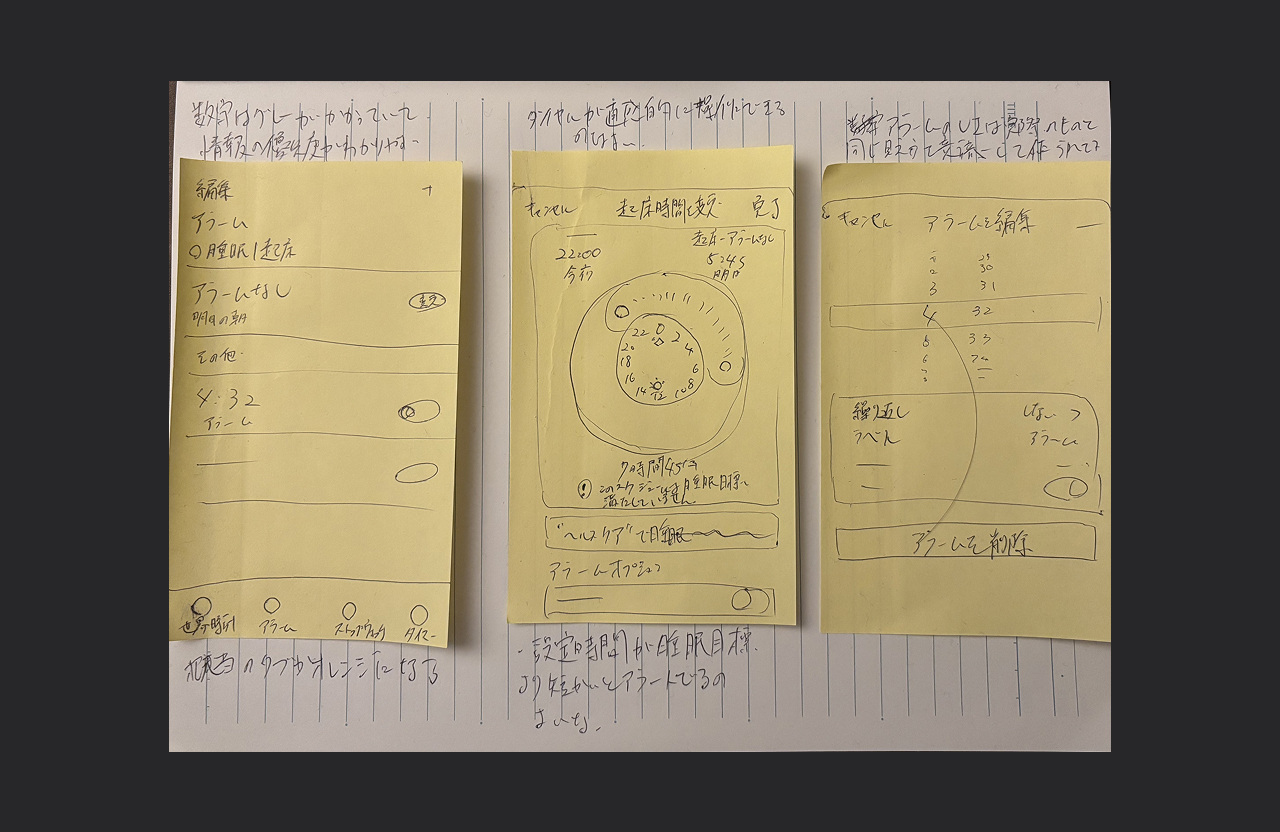 数字はグレーがかかっていて
情報の優先度がわかりやすい
編集 +
アラーム
睡眠 | 起床
アラームなし 変更
明日の朝
その他
4:32
アラーム
世界時計 アラーム ストップウォッチ タイマー
該当のタブがオレンジになる
ダイヤルが直感的に操作できる
のはよい。
キャンセル 起床時間を変更 完了
起床-アラームなし
22:00 5:45
今夜 明日
0 2 4 6 8 10 12 14 16 18 20 22
7時間45分
! このスケジュールは睡眠目標を
満たしていません
"ヘルスケア"で睡眠
アラームオプション
・設定時間が睡眠目標
より短かいとアラートでるの
はいいな。
アラームの
同じ
キャンセル アラームを編集
1 29
2 30
3 31
4 32
5 33
6
7
8
繰り返し しない >
ラベル アラーム
アラームを削除